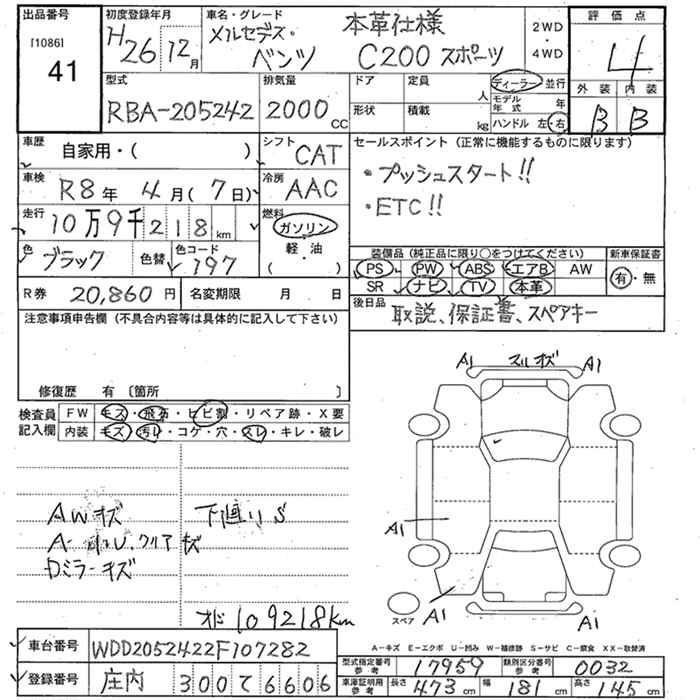 出品番号
[1086]
41
初度登録年月
H26 12月
車名・グレード
メルセデス・ベンツ
本革仕様
C200 スポーツ
2WD
・
4WD
評価点
4
外装 内装
B B
型式
RBA-205242
排気量
2000 CC
ドア 定員 人
形状 積載 kg
ディーラー・並行
モデル年式 年
ハンドル 左・右
車歴 自家用・( )
シフト CAT
車検 R8年 4月(7日)
冷房 AAC
走行 10万9千218km
燃料 ガソリン
軽・油
( )
色 ブラック 色替
色コード 197
セールスポイント (正常に機能するものに限ります)
・プッシュスタート!!
・ETC!!
装備品(純正品に限り○をつけてください)
PS PW ABS エアB AW
SR ナビ TV 本革
新車保証書
有・無
R券 20,860円
名変期限 月 日
後日品 取説、保証書、スペアキー
注意事項申告欄 (不具合内容等は具体的に記入して下さい)
修復歴 有 〔箇所 〕
検査員記入欄
FW キズ・飛石・ヒビ割・リペア跡・X要
内装 キズ・汚れ・コゲ・穴・スレ・キレ・破レ
AWキズ
下廻りS
Dミラーキズ
109218km
A1 A1
A1
A1 A1
スペア
A-キズ E-エクボ U-凹み W-補修跡 S-サビ C-腐食 XX-取替済
車台番号 WDD2052422F107282
登録番号 庄内 300 て 6606
型式指定番号 参考 17959
類別区分番号 参考 0032
車庫証明用 参考 長さ 473cm 幅 181cm 高さ 145cm